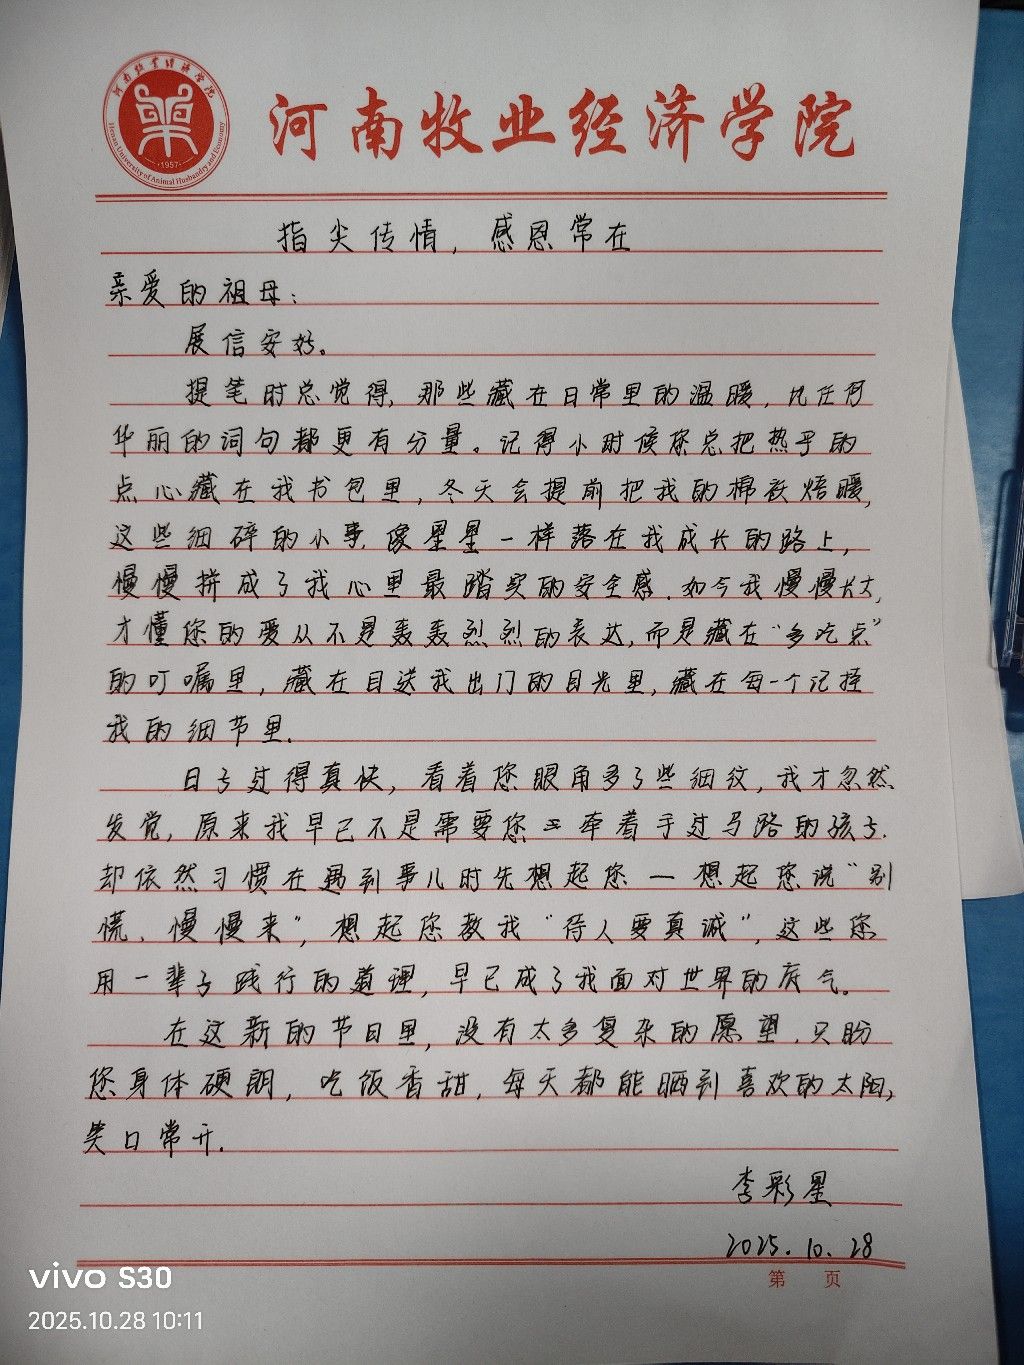 河南牧业经济学院
Henan University of Animal Husbandry and Economy
·1957·
河南牧业经济学院
指尖传情，感恩常在
亲爱的祖母：
展信安好。
提笔时总觉得，那些藏在日常里的温暖，比任何
华丽的词句都更有分量。记得小时候您总把热乎的
点心藏在我书包里，冬天会提前把我的棉袄焐暖，
这些细碎的小事，像星星一样落在我成长的路上，
慢慢拼成了我心里最踏实的安全感．如今我慢慢长大，
才懂您的爱从不是轰轰烈烈的表达，而是藏在“多吃点”
的叮嘱里，藏在目送我出门的目光里，藏在每一个记挂
我的细节里．
日子过得真快，看着您眼角多了些细纹，我才忽然
发觉，原来我早已不是需要您牵着手过马路的孩子．
却依然习惯在遇到事儿时先想起您一想起您说“别
慌、慢慢来”，想起您教我“待人要真诚”，这些您
用一辈子践行的道理，早已成了我面对世界的底气。
在这新的节日里，没有太多复杂的愿望．只盼
您身体硬朗，吃饭香甜，每天都能晒到喜欢的太阳，
笑口常开．
李彩星
2025.10.28
第 页
vivo S30
2025.10.28 10:11